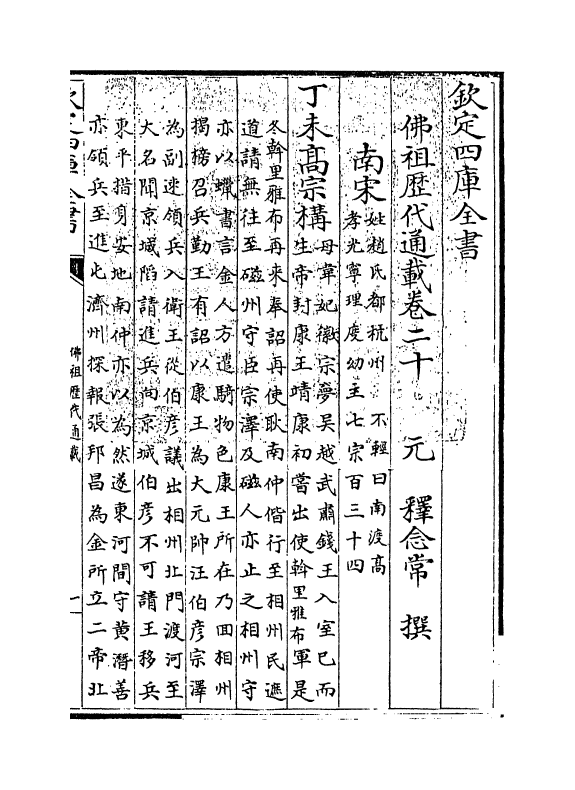 欽定四庫全書
佛祖歷代通載卷二十 元 釋念常 撰
南宋
姓趙氏都杭州 不輕曰南渡髙
孝光寧理度幼主七宗百三十四
丁未髙宗構
母韋妃徽宗夢吳越武肅錢王入室已而
生帝封康王靖康初嘗出使斡里雅布軍是
冬斡里雅布再來奉詔再使耿南仲偕行至相州民遮
道請無往至磁州守臣宗澤及磁人亦止之相州守
亦以蠟書言金人方遣騎物色康王所在乃回相州
揭榜召兵勤王有詔以康王為大元帥汪伯彦宗澤
為副速領兵入衛王從伯彦議出相州北門渡河至
大名聞京城陷請進兵向京城伯彦不可請王移兵
東平措身安地南仲亦以為然遂東河間守黄潛善
亦領兵至進屯濟州探報張邦昌為金所立二帝北
欽定四庫全書
佛祖歷代通載
一